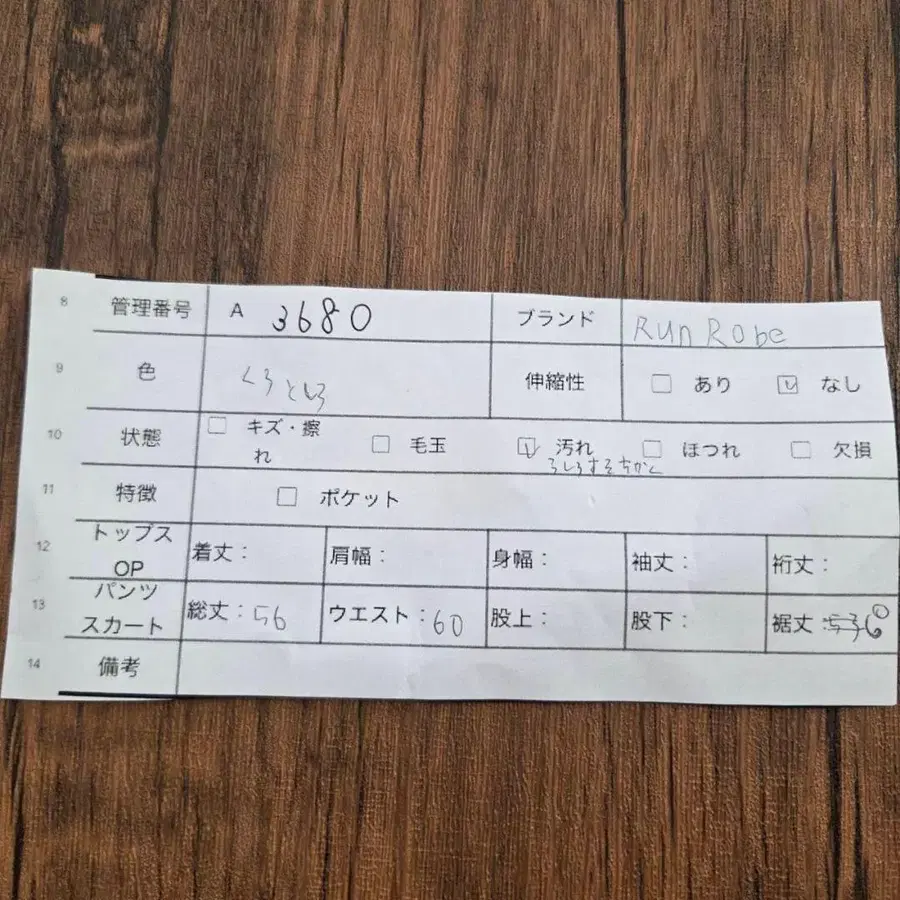 8 管理番号 A 3680 ブランド Run Robe
9 色 くろとしろ 伸縮性 □ あり ☑ なし
10 状態 □ キズ・擦れ □ 毛玉 ☑ 汚れ □ ほつれ □ 欠損
うしろすそちかく
11 特徴 □ ポケット
12 トップス OP 着丈: 肩幅: 身幅: 袖丈: 裄丈:
13 パンツ スカート 総丈:56 ウエスト:60 股上: 股下: 裾丈:
14 備考